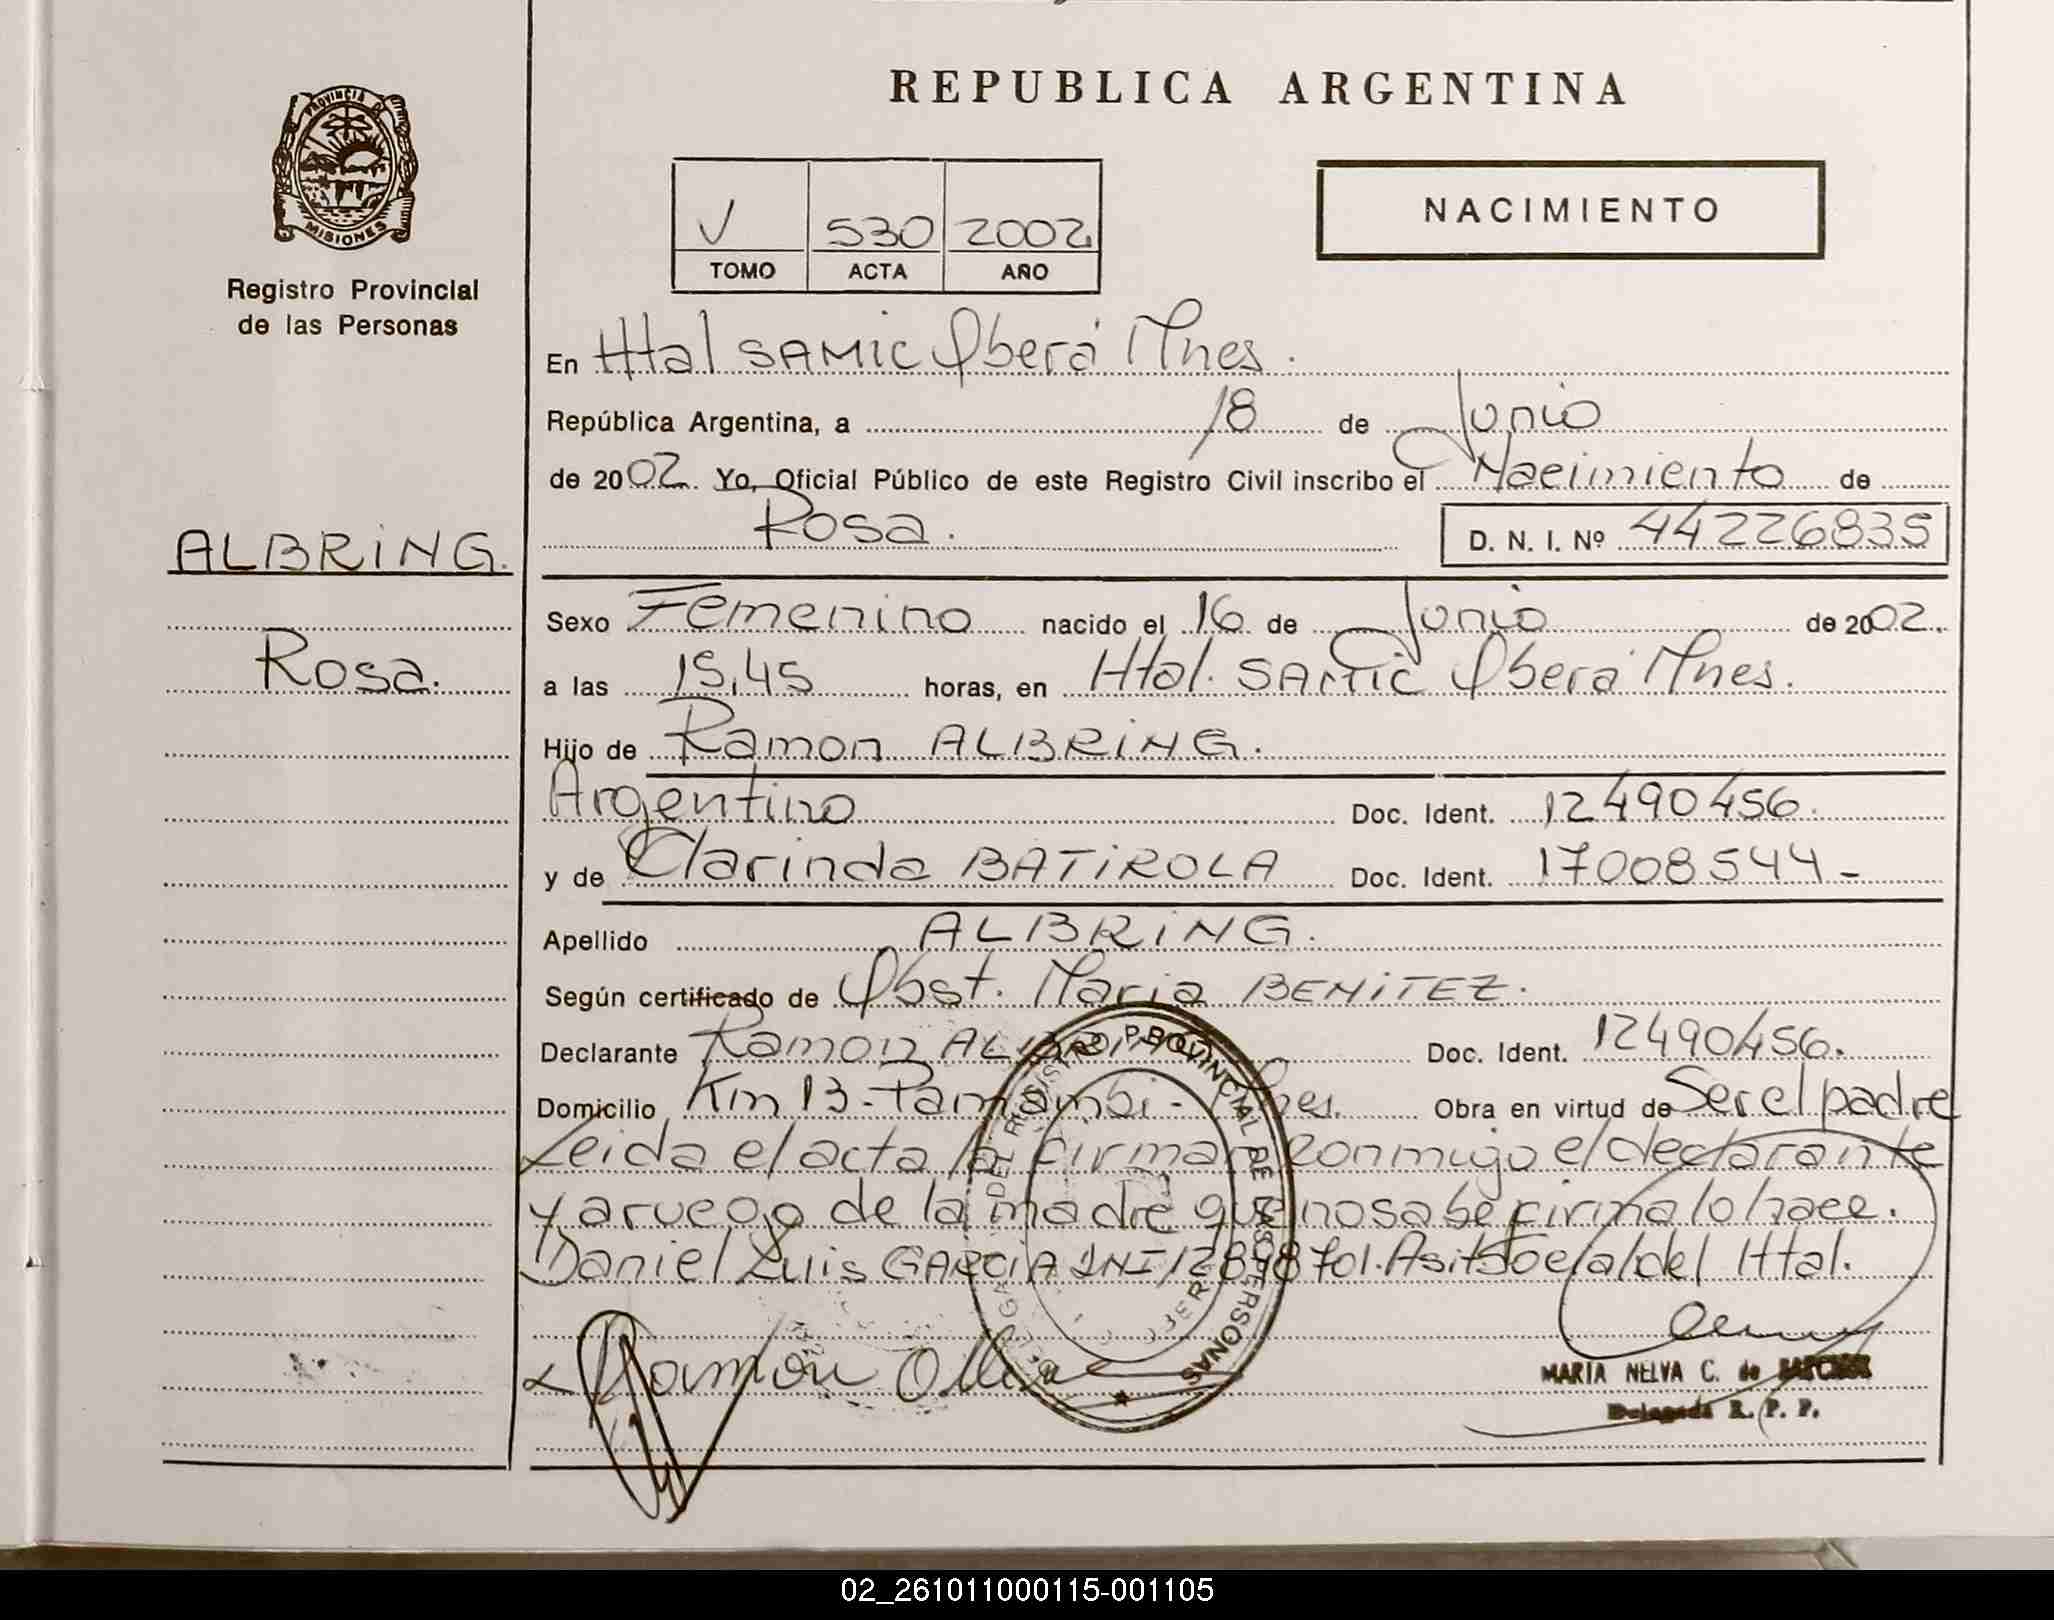 REPUBLICA ARGENTINA
PROVINCIA D
MISIONES
Registro Provincial
de las Personas
V 530 2002
TOMO ACTA AÑO
NACIMIENTO
En Htal SAMIC Oberá Mnes.
República Argentina, a 18 de Junio
de 2002. Yo, Oficial Público de este Registro Civil inscribo el Nacimiento de
Rosa. D. N. I. Nº 44226835
ALBRING.
Rosa.
Sexo Femenino nacido el 16 de Junio de 2002.
a las 15,45 horas, en Htal. SAMIC Oberá Mnes.
Hijo de Ramon ALBRING.
Argentino Doc. Ident. 12490456.
y de Clarinda BATIROLA Doc. Ident. 17008544-
Apellido ALBRING.
Según certificado de Obst. Maria BENITEZ.
Declarante Ramon ALBRING Doc. Ident. 12490456.
Domicilio Km 13-Panambi-Mnes. Obra en virtud de Ser el padre
Leida el acta la firman conmigo el declarante
y a ruego de la madre que no sabe firma lo hace.
Daniel Luis GARCIA DNI 12898701. Asit Social del Htal.
DELEGA DEL REGISTRO PROVINCIAL DE LAS PERSONAS
OBERA
Ramon
MARIA NELVA C. de
Delegada R. P. P.
02_261011000115-001105